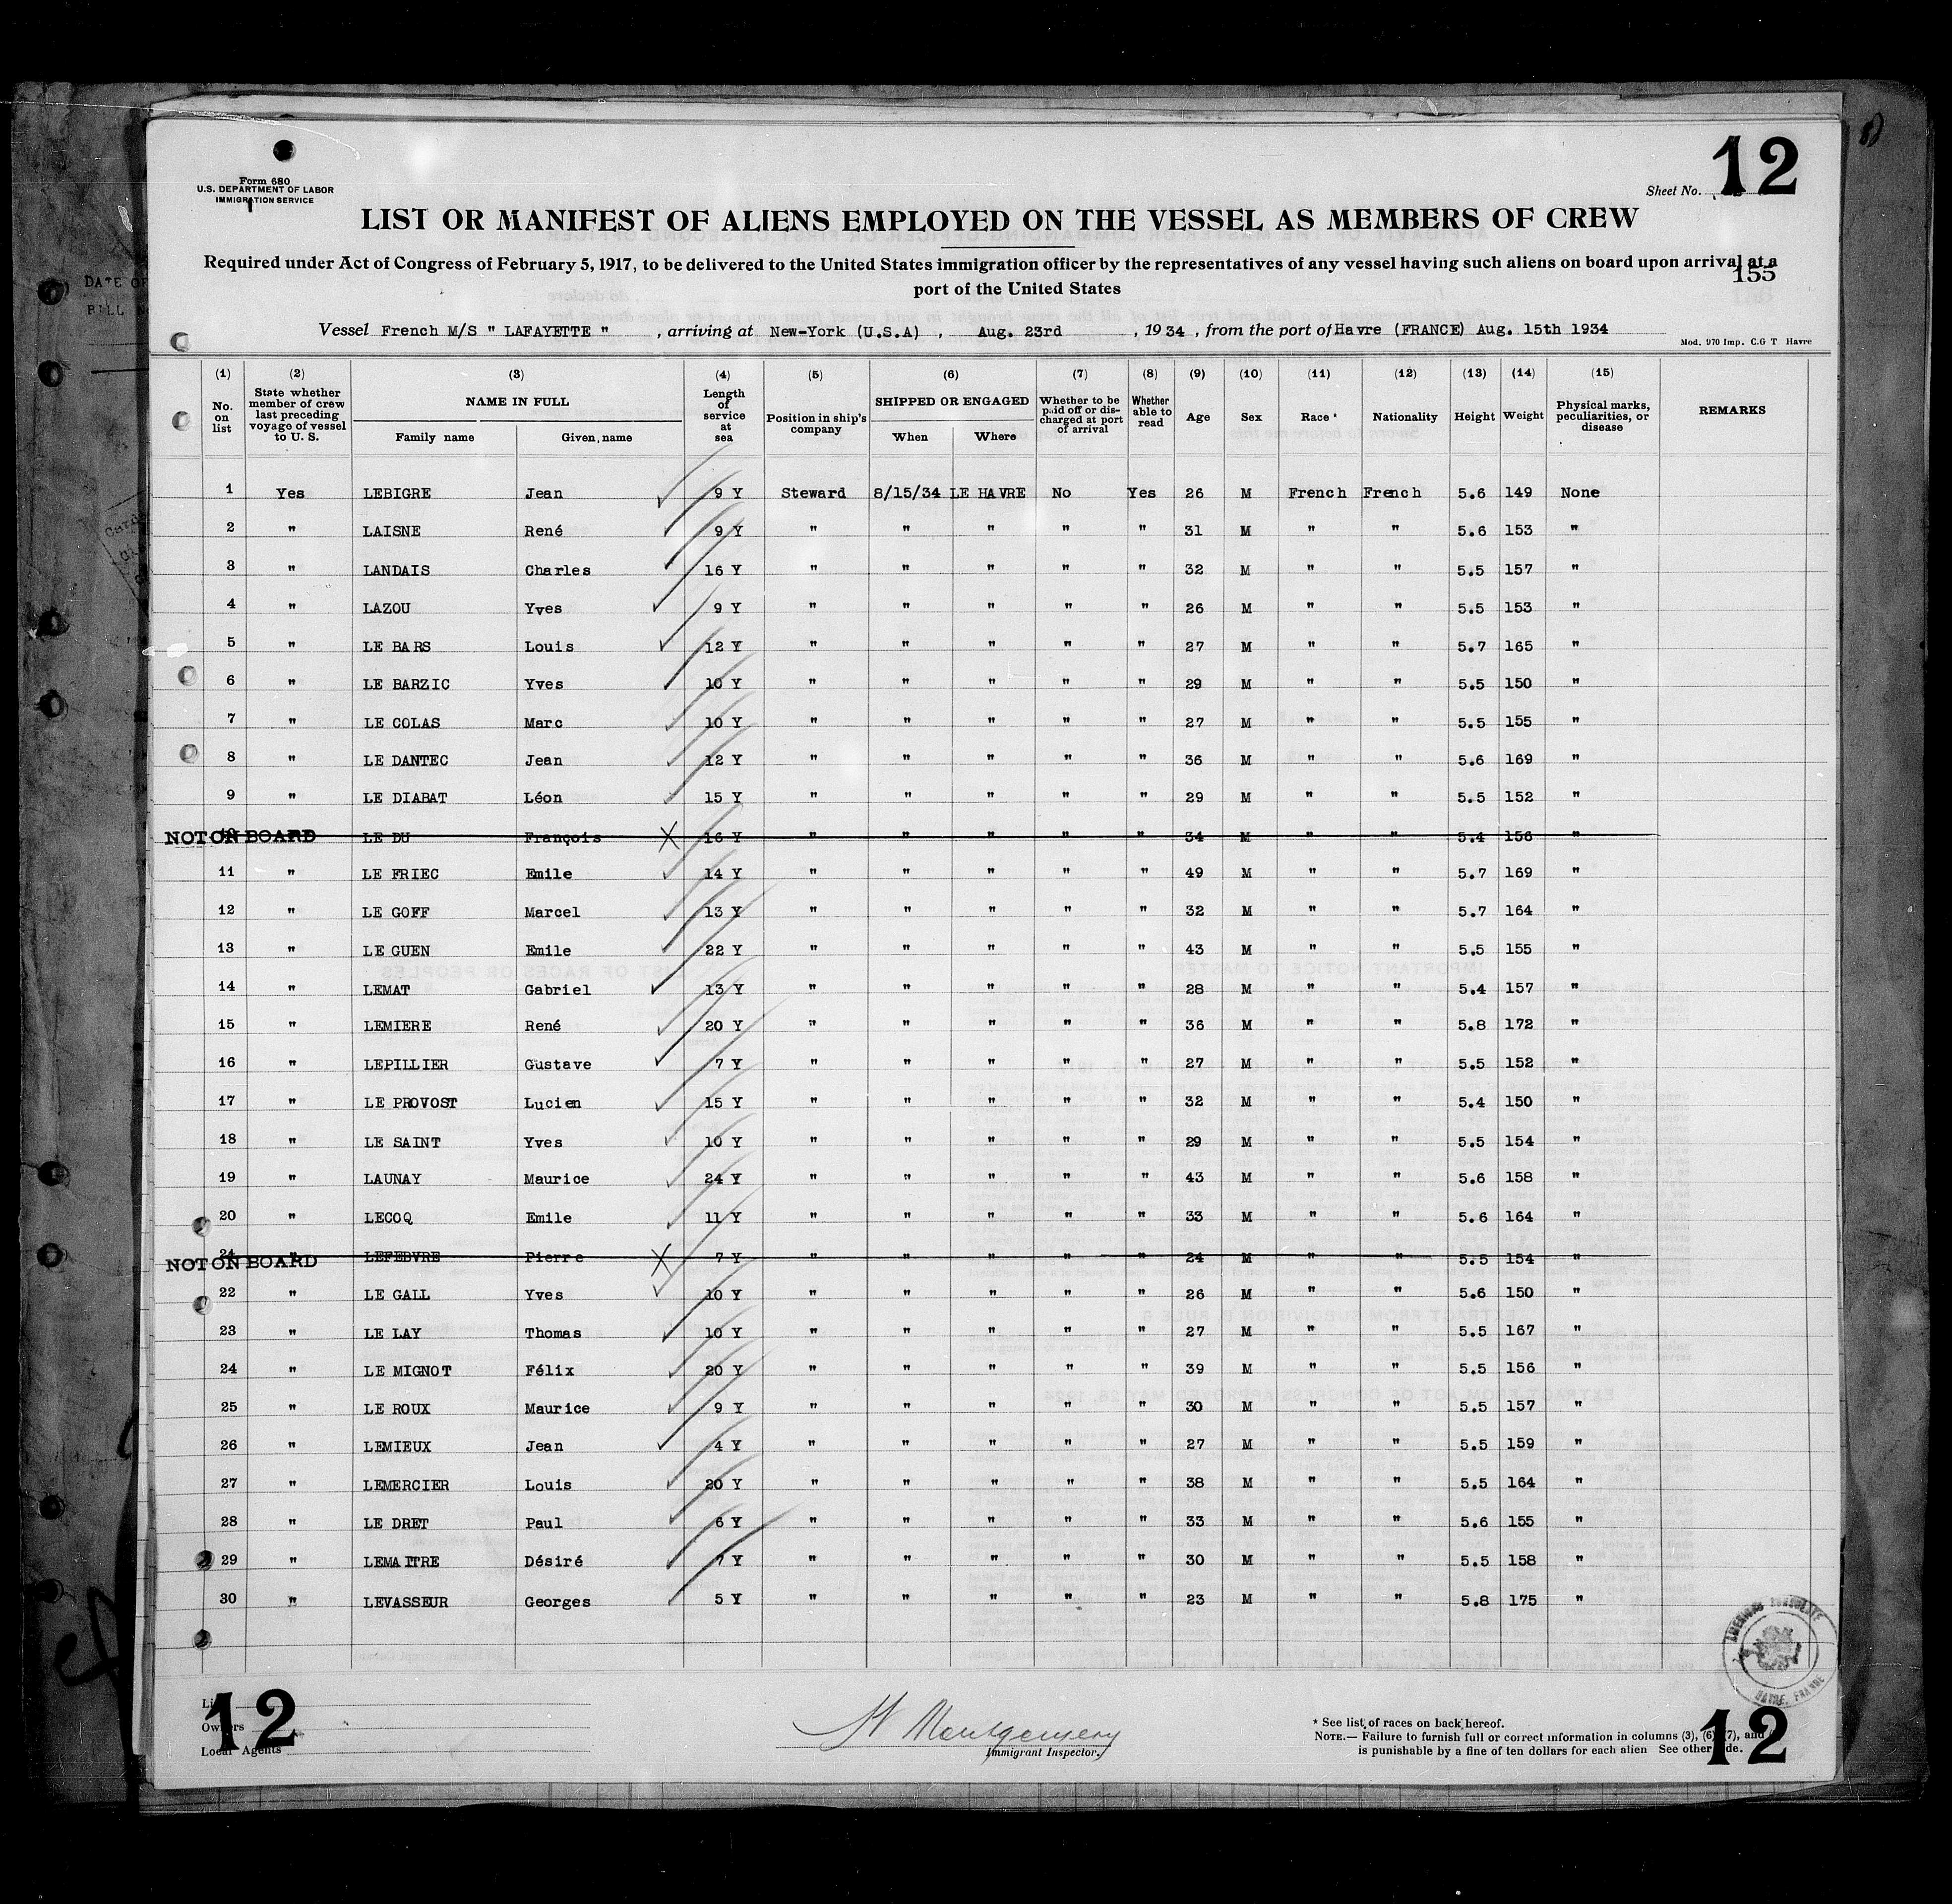 12
Form 680
U.S. DEPARTMENT OF LABOR
IMMIGRATION SERVICE
Sheet No.
LIST OR MANIFEST OF ALIENS EMPLOYED ON THE VESSEL AS MEMBERS OF CREW
Required under Act of Congress of February 5, 1917, to be delivered to the United States immigration officer by the representatives of any vessel having such aliens on board upon arrival at a
port of the United States
155
Vessel French M/S " LAFAYETTE " , arriving at New-York (U.S.A) , Aug. 23rd , 1934 , from the port of Havre (FRANCE) Aug. 15th 1934
Mod. 970 Imp. C.G T Havre
(1) (2) (3) (4) (5) (6) (7) (8) (9) (10) (11) (12) (13) (14) (15)
No. on list State whether member of crew last preceding voyage of vessel to U. S. NAME IN FULL Family name Given name Length of service at sea Position in ship's company SHIPPED OR ENGAGED When Where Whether to be paid off or discharged at port of arrival Whether able to read Age Sex Race * Nationality Height Weight Physical marks, peculiarities, or disease REMARKS
1 Yes LEBIGRE Jean 9 Y Steward 8/15/34 LE HAVRE No Yes 26 M French French 5.6 149 None
2 " LAISNE René 9 Y " " " " " 31 M " " 5.6 153 "
3 " LANDAIS Charles 16 Y " " " " " 32 M " " 5.5 157 "
4 " LAZOU Yves 9 Y " " " " " 26 M " " 5.5 153 "
5 " LE BARS Louis 12 Y " " " " " 27 M " " 5.7 165 "
6 " LE BARZIC Yves 10 Y " " " " " 29 M " " 5.5 150 "
7 " LE COLAS Marc 10 Y " " " " " 27 M " " 5.5 155 "
8 " LE DANTEC Jean 12 Y " " " " " 36 M " " 5.6 169 "
9 " LE DIABAT Léon 15 Y " " " " " 29 M " " 5.5 152 "
NOT ON BOARD LE DU François 16 Y " " " " " 34 M " " 5.4 156 "
11 " LE FRIEC Emile 14 Y " " " " " 49 M " " 5.7 169 "
12 " LE GOFF Marcel 13 Y " " " " " 32 M " " 5.7 164 "
13 " LE GUEN Emile 22 Y " " " " " 43 M " " 5.5 155 "
14 " LEMAT Gabriel 13 Y " " " " " 28 M " " 5.4 157 "
15 " LEMIERE René 20 Y " " " " " 36 M " " 5.8 172 "
16 " LEPILLIER Gustave 7 Y " " " " " 27 M " " 5.5 152 "
17 " LE PROVOST Lucien 15 Y " " " " " 32 M " " 5.4 150 "
18 " LE SAINT Yves 10 Y " " " " " 29 M " " 5.5 154 "
19 " LAUNAY Maurice 24 Y " " " " " 43 M " " 5.6 158 "
20 " LECOQ Emile 11 Y " " " " " 33 M " " 5.6 164 "
21 NOT ON BOARD " LEFEBVRE Pierre 7 Y " " " " " 24 M " " 5.5 154 "
22 " LE GALL Yves 10 Y " " " " " 26 M " " 5.6 150 "
23 " LE LAY Thomas 10 Y " " " " " 27 M " " 5.5 167 "
24 " LE MIGNOT Félix 20 Y " " " " " 39 M " " 5.5 156 "
25 " LE ROUX Maurice 9 Y " " " " " 30 M " " 5.5 157 "
26 " LEMIEUX Jean 4 Y " " " " " 27 M " " 5.5 159 "
27 " LEMERCIER Louis 20 Y " " " " " 38 M " " 5.5 164 "
28 " LE DRET Paul 6 Y " " " " " 33 M " " 5.6 155 "
29 " LEMAITRE Désiré 7 Y " " " " " 30 M " " 5.5 158 "
30 " LEVASSEUR Georges 5 Y " " " " " 23 M " " 5.8 175 "
AMERICAN CONSULATE
HAVRE, FRANCE
12
Owners
Local Agents
H Montgomery
Immigrant Inspector.
* See list of races on back hereof.
NOTE.— Failure to furnish full or correct information in columns (3), (6), (7), and
is punishable by a fine of ten dollars for each alien See other
12